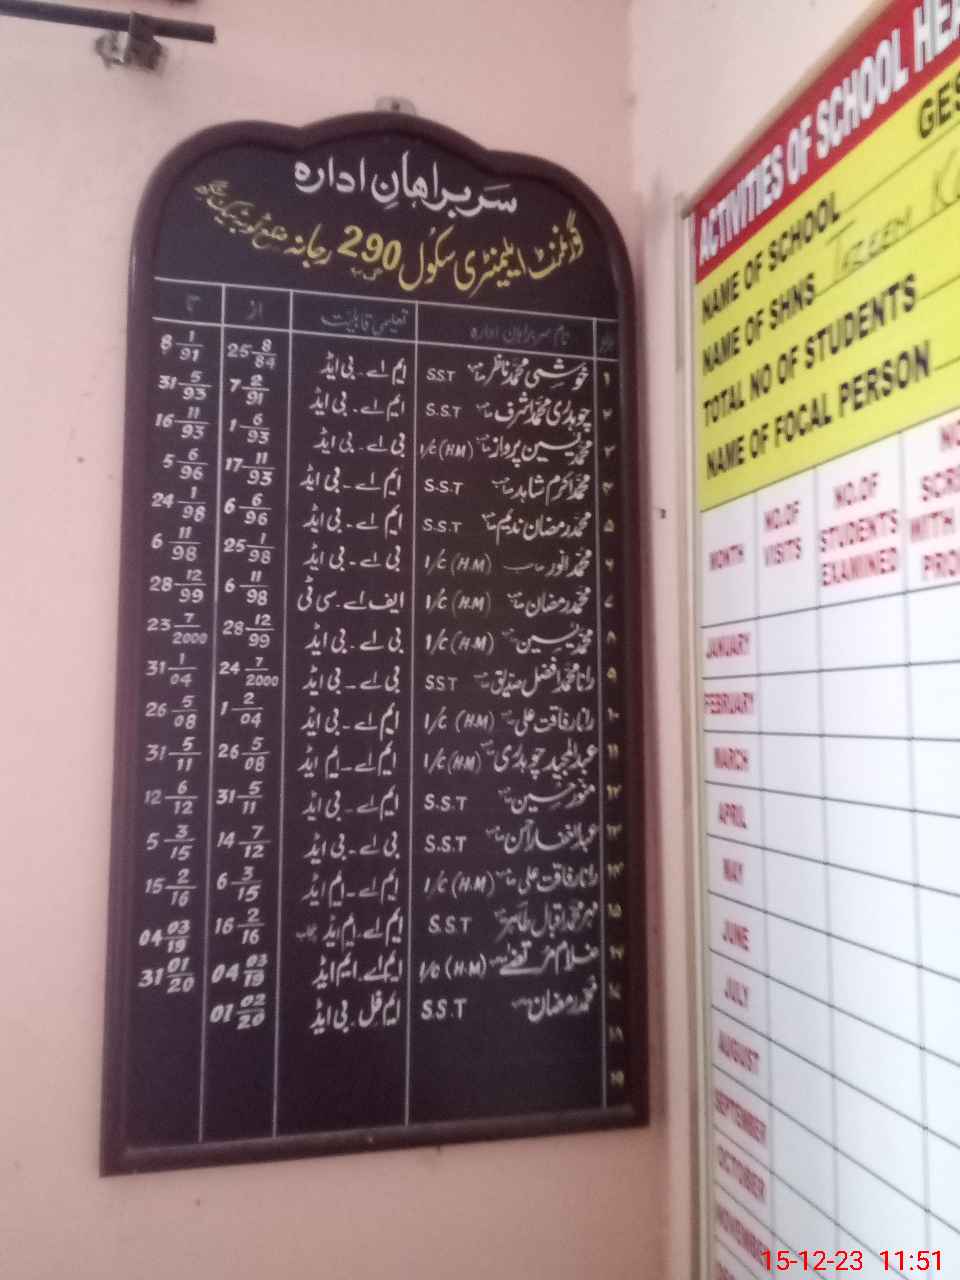 سربراہانِ ادارہ
گورنمنٹ ایلیمنٹری سکول 290 رجانہ ضلع ٹوبہ ٹیک سنگھ
نام سربراہان ادارہ تعلیمی قابلیت از تا
۱ خوشی محمد ناظر صاحب S.S.T ایم اے ۔ بی ایڈ 25 8/84 8 1/91
۲ چوہدری محمد اشرف صاحب S.S.T ایم اے ۔ بی ایڈ 7 2/91 31 5/93
۳ محمد یٰسین پرواز صاحب I/C (HM) بی اے ۔ بی ایڈ 1 6/93 16 11/93
۴ محمد اکرم شاہد صاحب S.S.T ایم اے ۔ بی ایڈ 17 11/93 5 6/96
۵ محمد رمضان ندیم صاحب S.S.T ایم اے ۔ بی ایڈ 6 6/96 24 1/98
۶ محمد انور صاحب I/C (H.M) بی اے ۔ بی ایڈ 25 1/98 6 11/98
۷ محمد رمضان صاحب I/C (H.M) ایف اے ۔ سی ٹی 6 11/98 28 12/99
۸ محمد یٰسین صاحب I/C (H.M) بی اے ۔ بی ایڈ 28 12/99 23 7/2000
۹ رانا محمد افضل صدیق صاحب SST بی اے ۔ بی ایڈ 24 7/2000 31 1/04
۱۰ رانا رفاقت علی صاحب I/C (H.M) ایم اے ۔ بی ایڈ 1 2/04 26 5/08
۱۱ عبدالمجید چوہدری صاحب I/C (HM) ایم اے ۔ ایم ایڈ 26 5/08 31 5/11
۱۲ S.S.T ایم اے ۔ بی ایڈ 31 5/11 12 6/12
۱۳ عبدالغفار صاحب S.S.T بی اے ۔ بی ایڈ 14 7/12 5 3/15
۱۴ رانا رفاقت علی صاحب I/C (H.M) ایم اے ۔ ایم ایڈ 6 3/15 15 2/16
۱۵ مہر محمد اقبال طاہر SST ایم اے ۔ ایم ایڈ 16 2/16 04 03/19
۱۶ غلام مرتضےٰ صاحب I/C (H.M) ایم اے ۔ ایم ایڈ 04 03/19 31 01/20
۱۷ محمد رمضان صاحب S.S.T ایم فل ۔ بی ایڈ 01 02/20
۱۸
۱۹
ACTIVITIES OF SCHOOL
NAME OF SCHOOL
NAME OF SHNS
TOTAL NO OF STUDENTS
NAME OF FOCAL PERSON
MONTH NO.OF VISITS NO.OF STUDENTS EXAMINED
JANUARY
FEBRUARY
MARCH
APRIL
MAY
JUNE
JULY
AUGUST
SEPTEMBER
OCTOBER
NOVEMBER
15-12-23 11:51